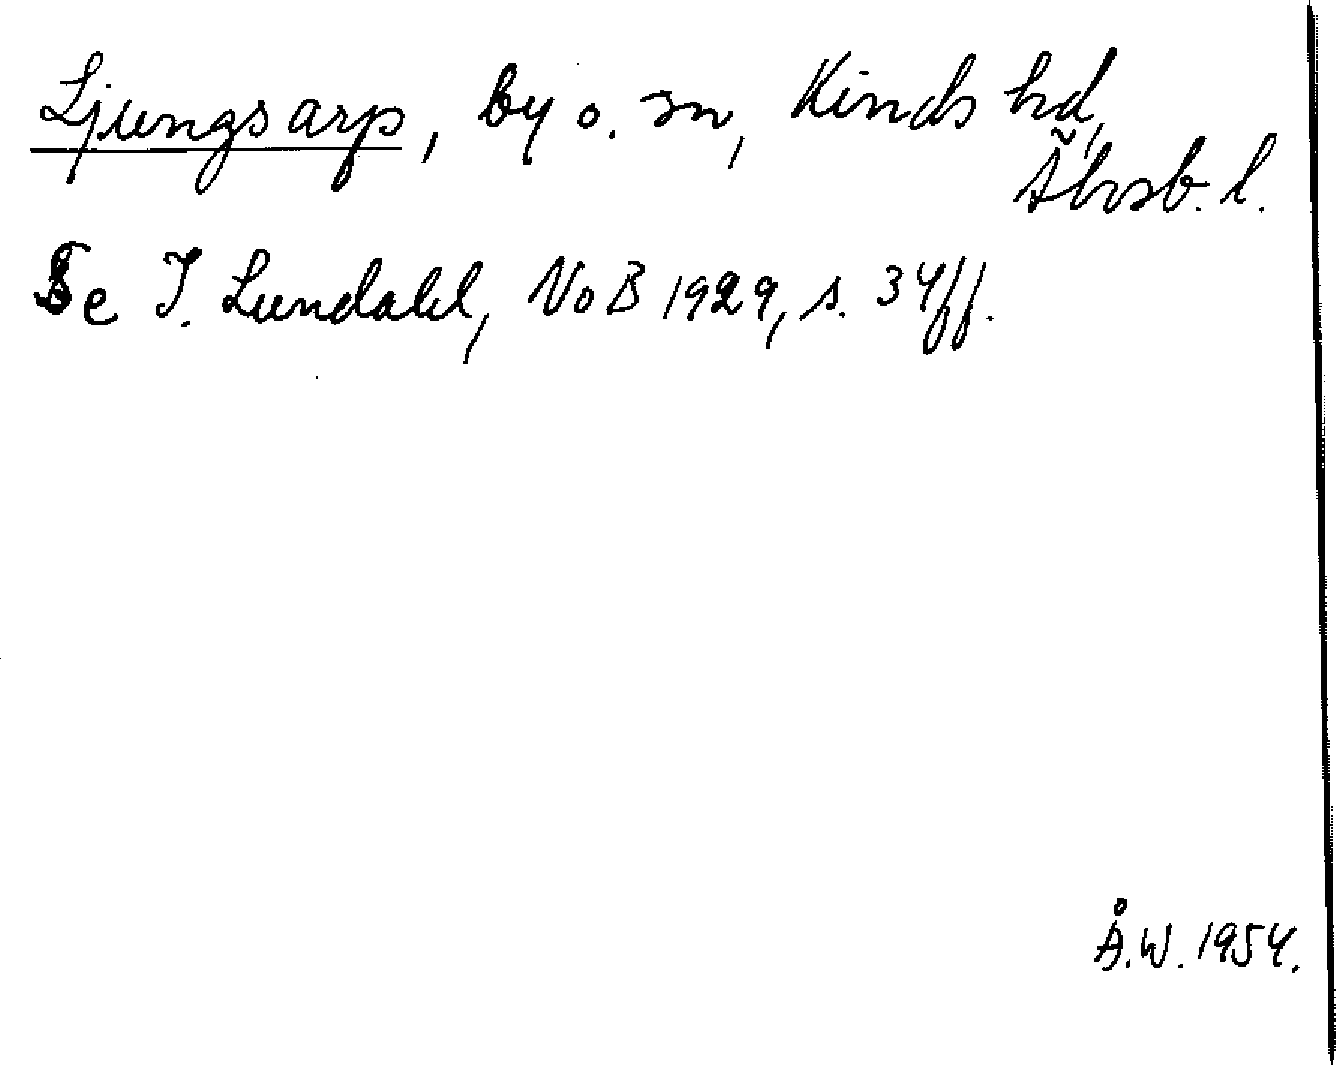 Ljungsarp, by o. sn, Kinds hd,
Älvsb. l.
Se I. Lundahl, NoB 1929, s. 34ff.
Å.W. 1954.